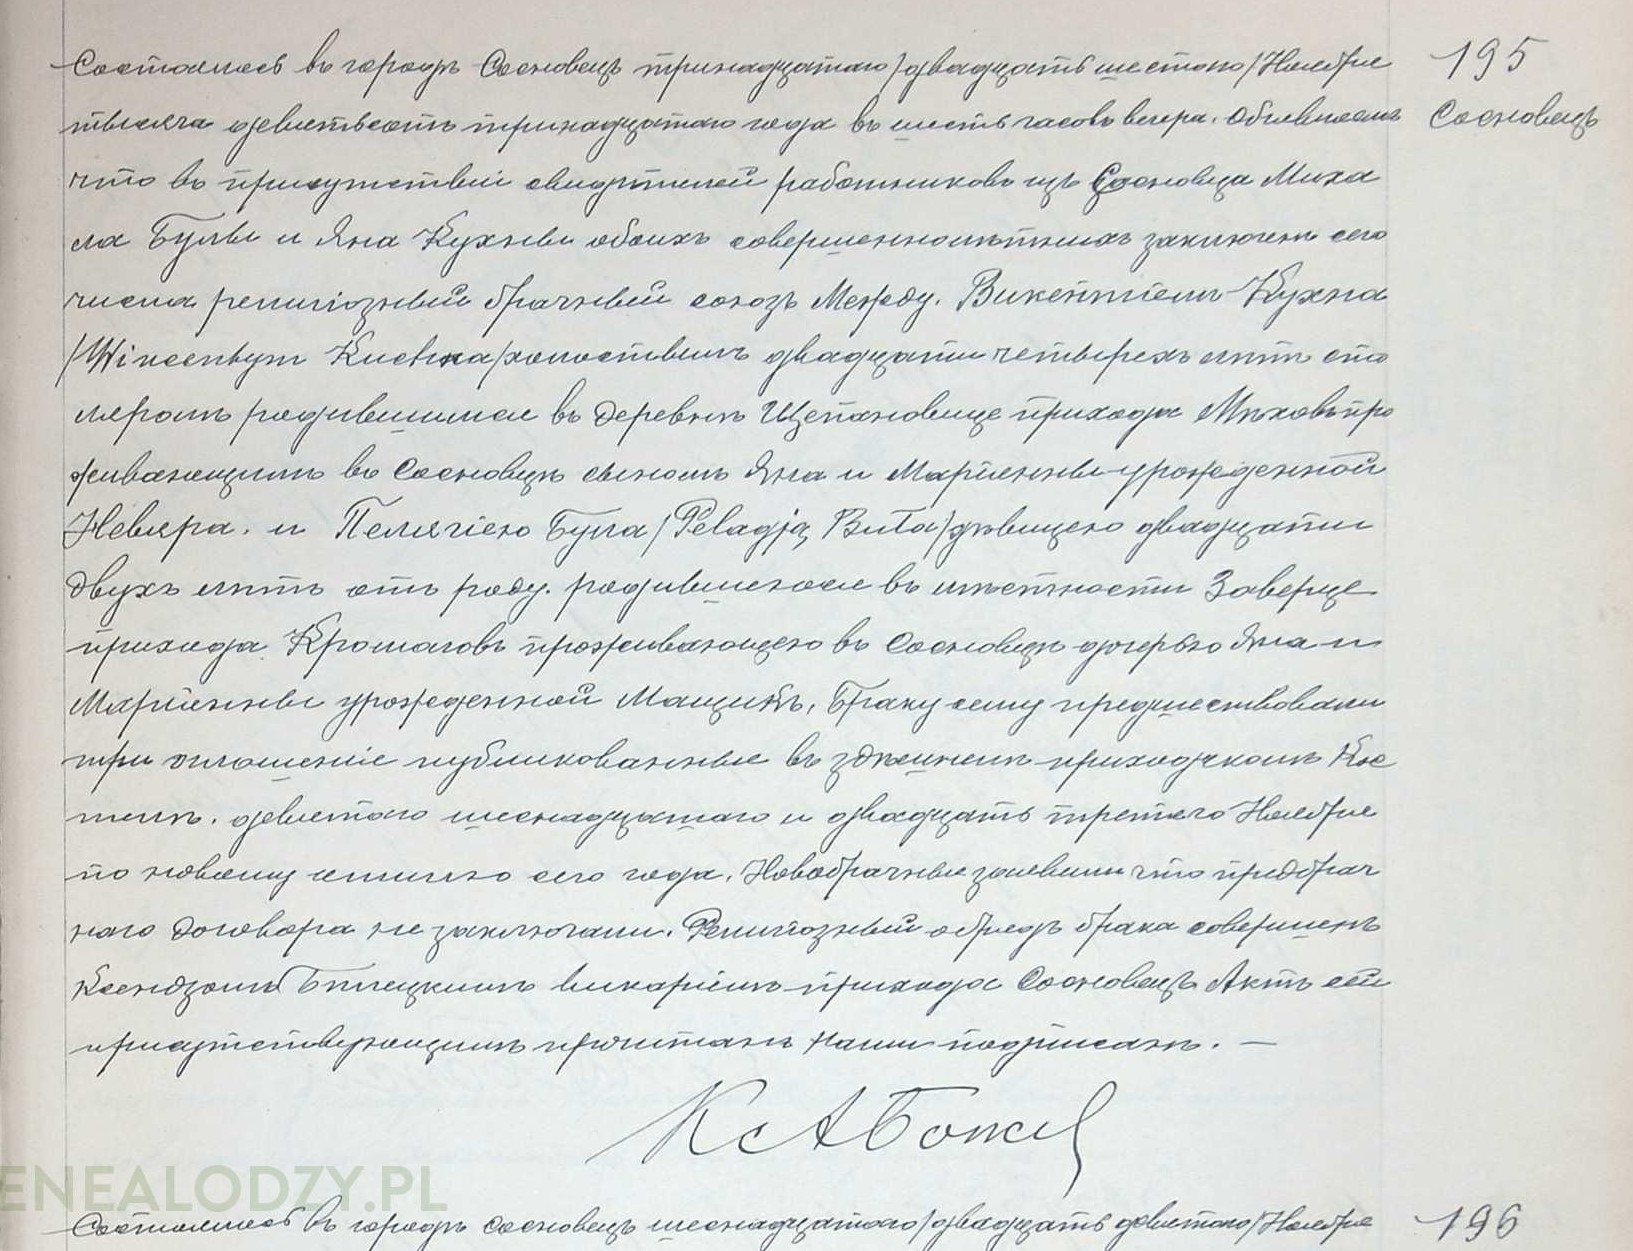 Состоялось въ городѣ Сосновецъ тринадцатаго /двадцать шестого/ Ноября 195
тысяча девятьсотъ тринадцатаго года въ шесть часовъ вечера. Объявляемъ Сосновецъ
что въ присутствіи свидѣтелей работниковъ изъ Сосновца Миха
ла Булы и Яна Кухны обоихъ совершеннолѣтнихъ заключенъ сего
числа религіозный брачный союзъ Между. Викентіемъ Кухна
/Wincentym Kuchna/ холостымъ двадцати четырехъ лѣтъ сто
ляромъ родившимся въ деревнѣ Щепановице прихода Мѣховъ про
живающимъ въ Сосновцѣ сыномъ Яна и Маріанны урожденной
Невяра. и Пелягіею Була /Pelagją Buła/ дѣвицею двадцати
двухъ лѣтъ отъ роду. родившеюся въ мѣстности Заверце
прихода Кромоловъ проживающею въ Сосновцѣ дочерью Яна и
Маріанны урожденной Мащикъ, Браку сему предшествовали
три оглашенія публикованныя въ здѣшнемъ приходскомъ Кос
телѣ. девятаго шеснадцатаго и двадцать третяго Ноября
по новому стилю сего года. Новобрачные заявили что предбрач
наго договора не заключали. Религіозный обрядъ брака совершенъ
Ксендзомъ Билецкимъ викаріемъ прихода Сосновецъ Актъ сей
присутствующимъ прочитанъ Нами подписанъ. —
Кс А
GENEALODZY.PL
Состоялось въ городѣ Сосновецъ шеснадцатаго /двадцать девятого/ Ноября 196